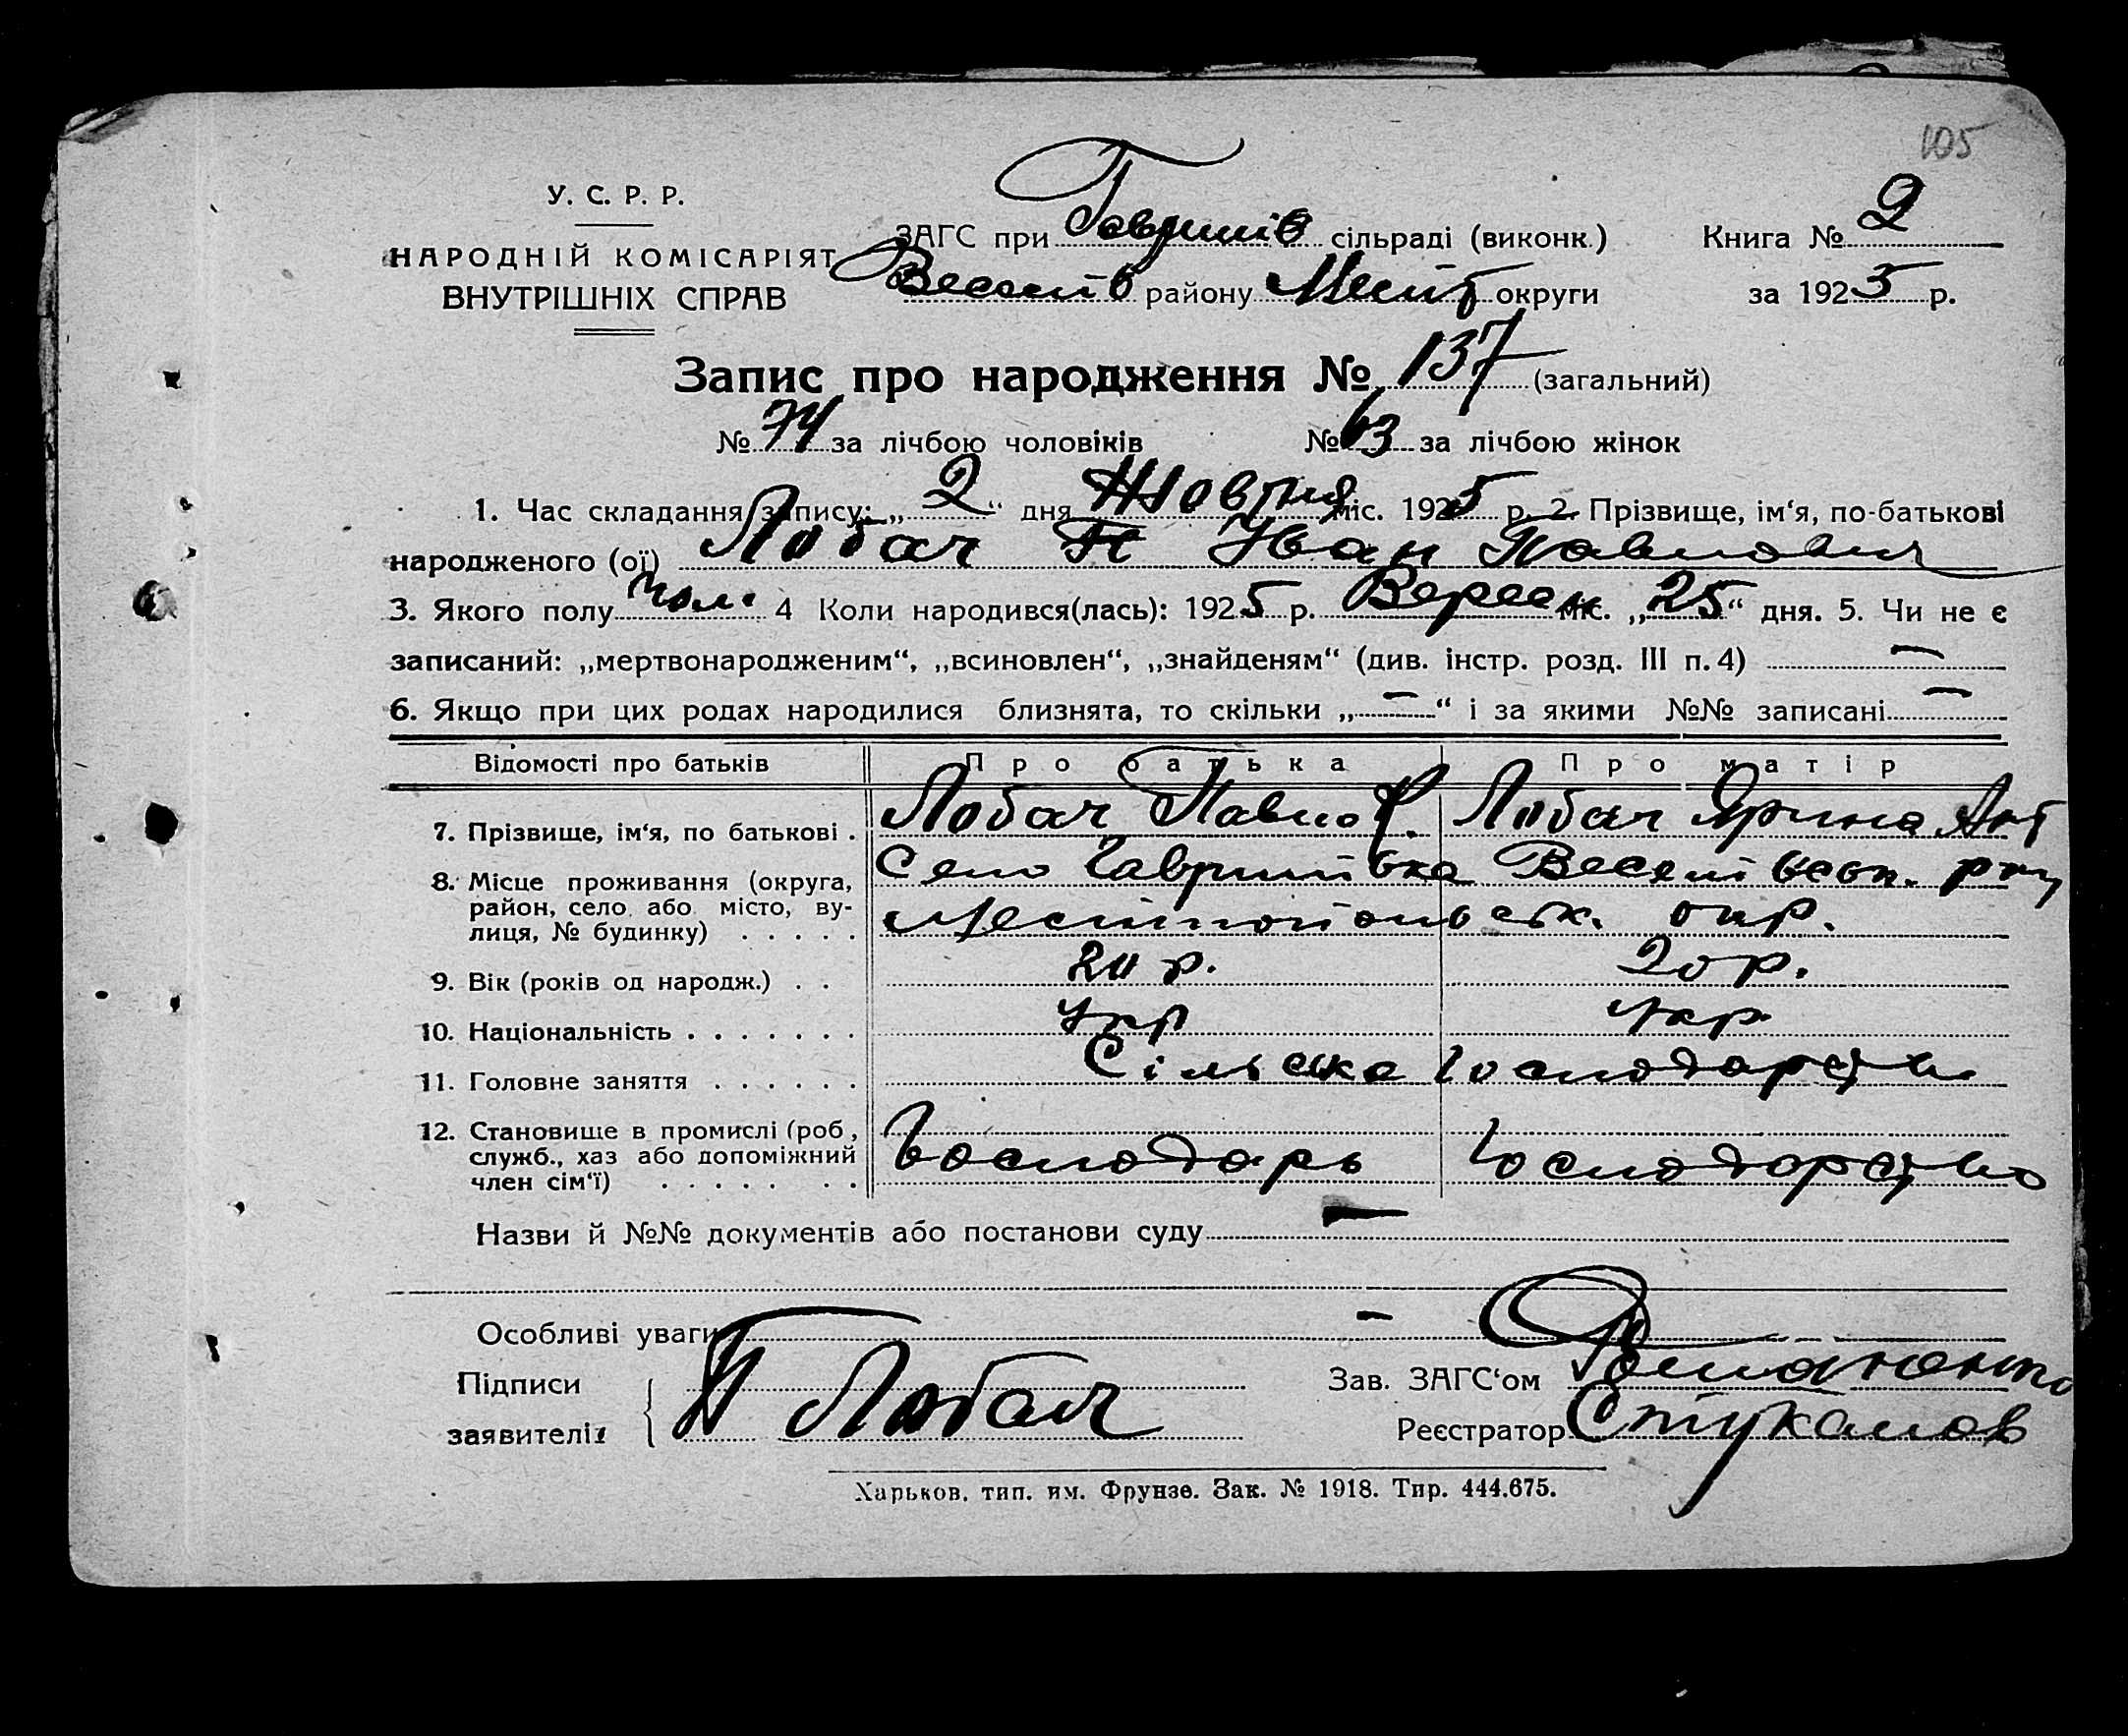 105
У. С. Р. Р.
НАРОДНІЙ КОМІСАРІЯТ
ВНУТРІШНІХ СПРАВ
ЗАГС при Гаврилів сільраді (виконк.)
Веселів району Меліт округи
Книга № 2
за 1925 р.
Запис про народження № 137 (загальний)
№ 74 за лічбою чоловіків № 63 за лічбою жінок
1. Час складання запису: „2“ дня Жовтня міс. 1925 р. 2. Прізвище, ім‘я, по-батькові
народженого (ої) Лобач Іван Павлович
3. Якого полу чол. 4 Коли народився(лась): 1925 р. Вересн міс. „25“ дня. 5. Чи не є
записаний: „мертвонародженим“, „всиновлен“, „знайденям“ (див. інстр. розд. III п. 4) —
6. Якщо при цих родах народилися близнята, то скільки „—“ і за якими №№ записані —
Відомості про батьків Про батька Про матір
7. Прізвище, ім‘я, по батькові . Лобач Павло Лобач Ярина Ант
8. Місце проживання (округа, Село Гаврилівка Веселівськ. рну
район, село або місто, ву- Мелітопольськ. окр.
лиця, № будинку) . . . . .
9. Вік (років од народж.) . . 20 р. 20 р.
10. Національність . . . . . . . Укр Укр
11. Головне заняття . . . . . . Сільське господарство
12. Становище в промислі (роб,
служб., хаз або допоміжний Господарь Господарство
член сім‘ї) . . . . . . .
Назви й №№ документів або постанови суду —
Особливі уваги —
Підписи
заявителів П Лобач
Зав. ЗАГС‘ом Романенко
Реєстратор Стукалов
Харьков, тип. им. Фрунзе. Зак. № 1918. Тир. 444.675.